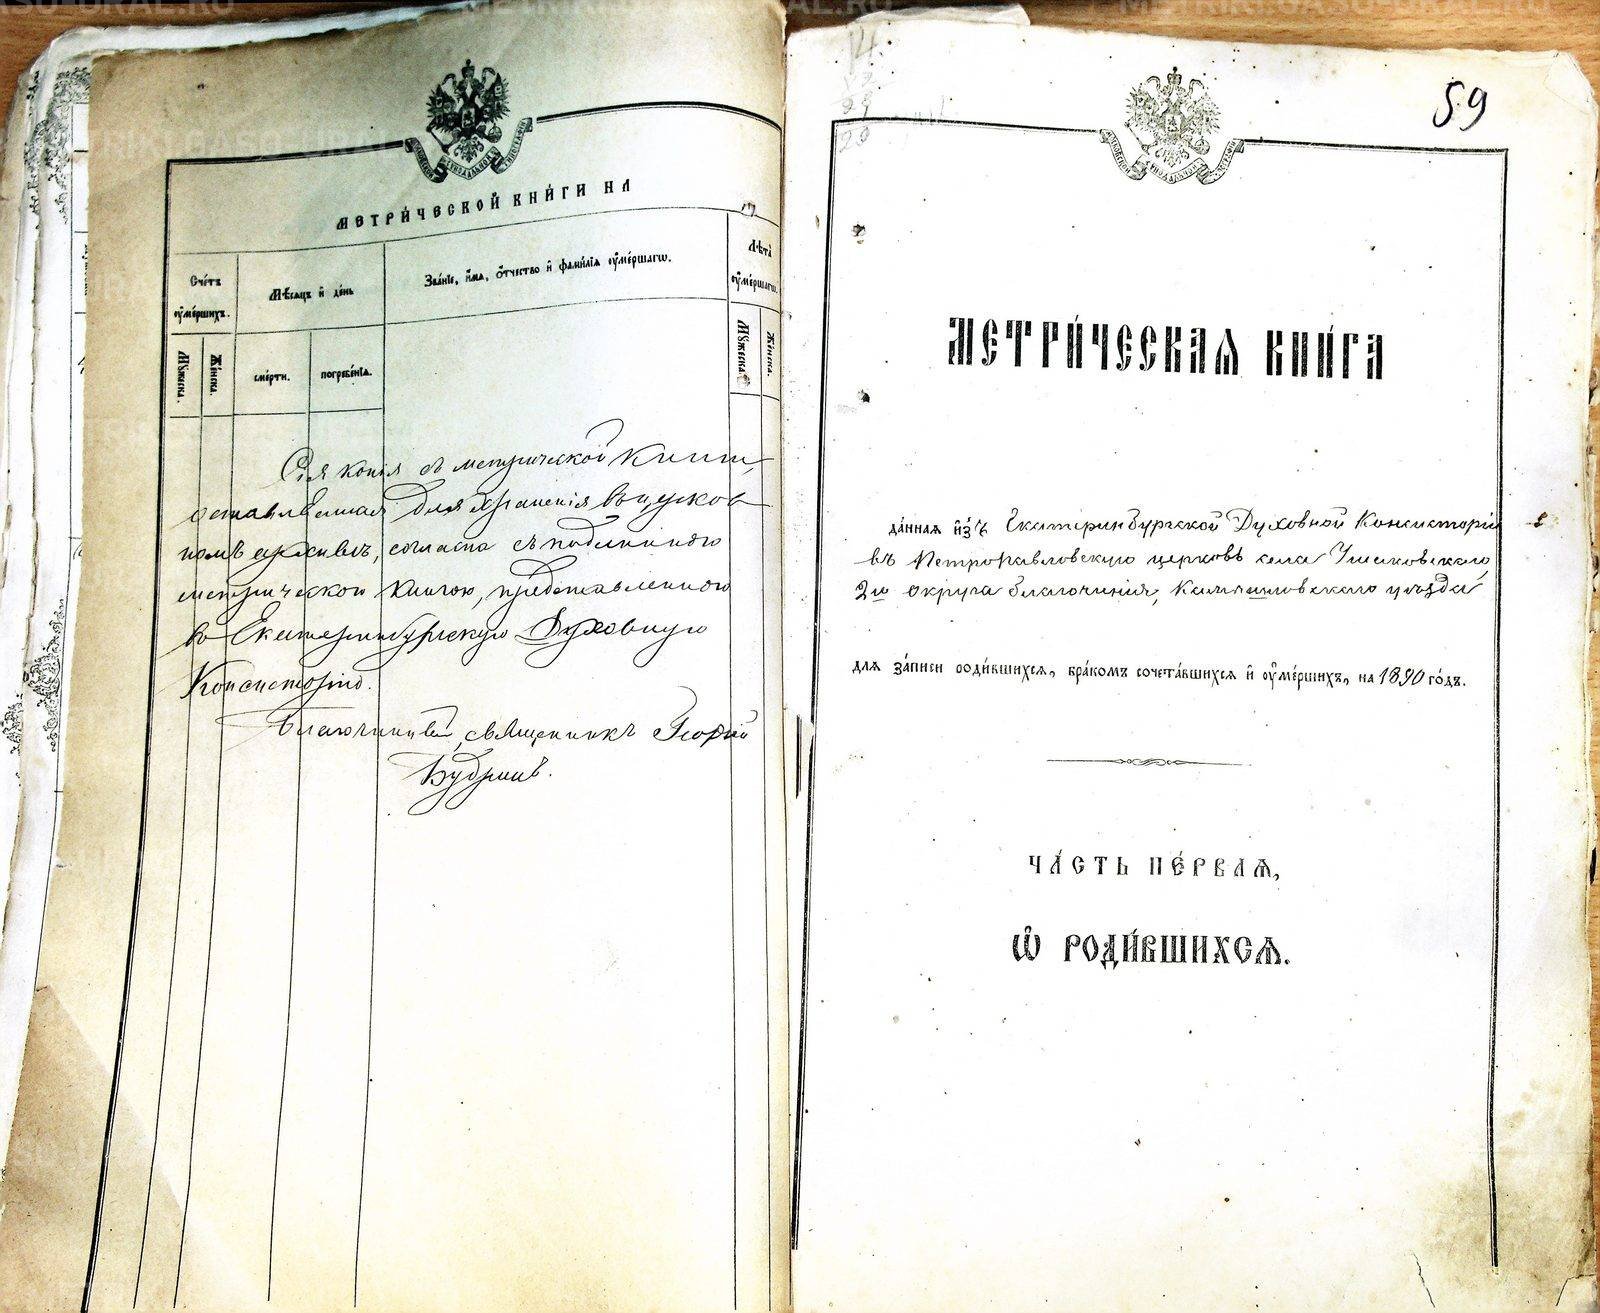 МЕТРИ́ЧЕСКОЙ КНИ́ГИ НА
Сче́тъ ᲂу҆ме́ршихъ.
Мѣ́сяцъ и҆ де́нь
Зва́нїе, и҆́мя, ѻ҆́тчество и҆ фами́лїя ᲂу҆ме́ршагѡ.
Лѣ́та ᲂу҆ме́ршагѡ.
Мꙋ́жеска.
Же́нска.
сме́рти.
погребе́нїѧ.
Мꙋ́жеска.
Же́нска.
Сія копія съ метрической книги,
оставленная для храненія въ церков
номъ архивѣ, согласна съ подлинною
метрическою книгою, представленною
въ Екатеринбургскую Духовную
Консисторію.
Благочинный, священникъ Георгій
59
МЕТРИ́ЧЕСКАѦ КНИ́ГА
да́нная и҆зъ Екатеринбургской Духовной Консисторіи
въ Петропавловскую церковь села Ушаковскаго
2го округа благочинія, Камышловскаго уѣзда
для за́писи роди́вшихся, бра́комъ сочета́вшихся и҆ ᲂу҆ме́ршихъ, на 1890 го́дъ.
ЧА́СТЬ ПЕ́РВАѦ,
Ѡ҆ РОДИ́ВШИХСѦ.
METRIKI.GASOURAL.RU